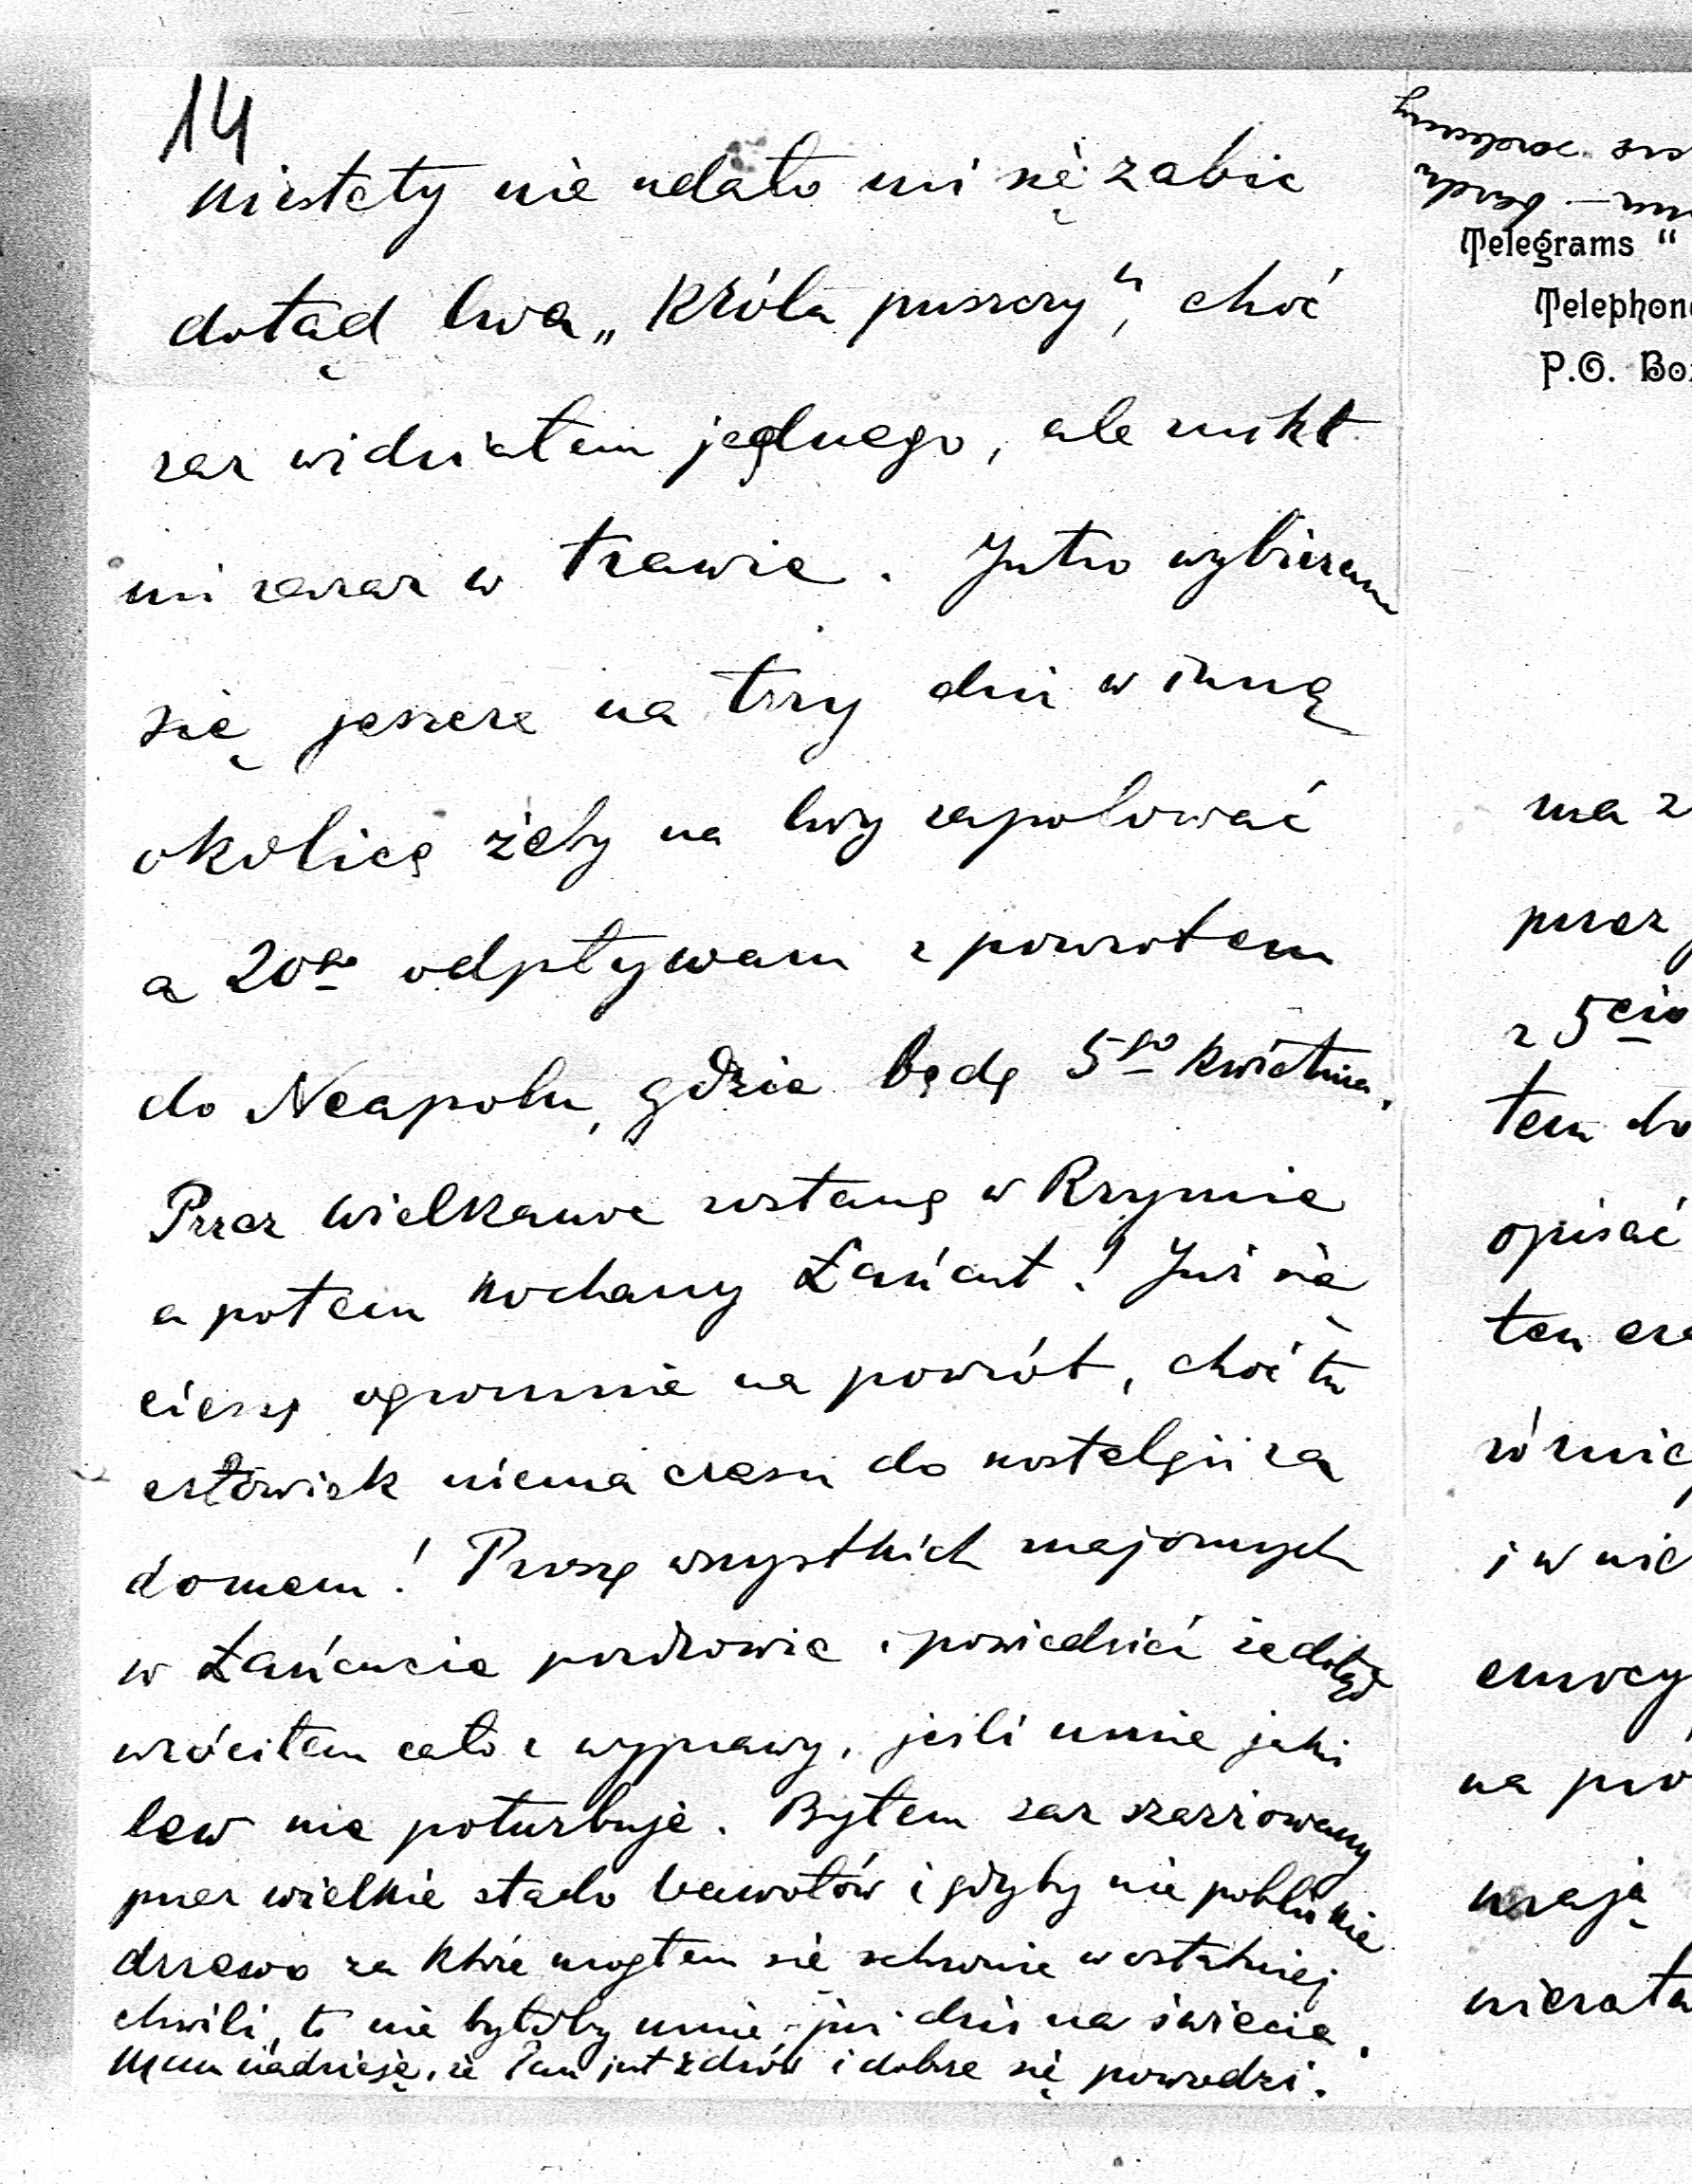 14
niestety nie udało mi się zabić
dotąd lwa „Króla puszczy", choć
raz widziałem jednego, ale znikł
mi zaraz w trawie. Jutro wybieram
się jeszcze na trzy dni w inną
okolicę żeby na lwy zapolować
a 20go odpływam z powrotem
do Neapolu, gdzie będę 5go kwietnia.
Przez Wielkanoc zostanę w Rzymie
a potem kochany Łańcut! Już się
cieszę ogromnie na powrót, choć tu
człowiek niema czasu do nostalgii za
domem! Proszę wszystkich znajomych
w Łańcucie pozdrowić i powiedzieć że dotąd
wróciłem cało z wyprawy, jeśli mnie jaki
lew nie poturbuje. Byłem raz szarżowany
przez wielkie stado bawołów i gdyby nie pobliskie
drzewo za które mogłem się schronić w ostatniej
chwili, to nie byłoby mnie już dziś na świecie.
Mam nadzieję, że Pan jest zdrów i dobrze się powodzi.
Telegrams "
Telephone
P.O. Box
ma z
przez
z 5cio
tem do
opisać
ten cza
i w nie
emocy
na pró
mają